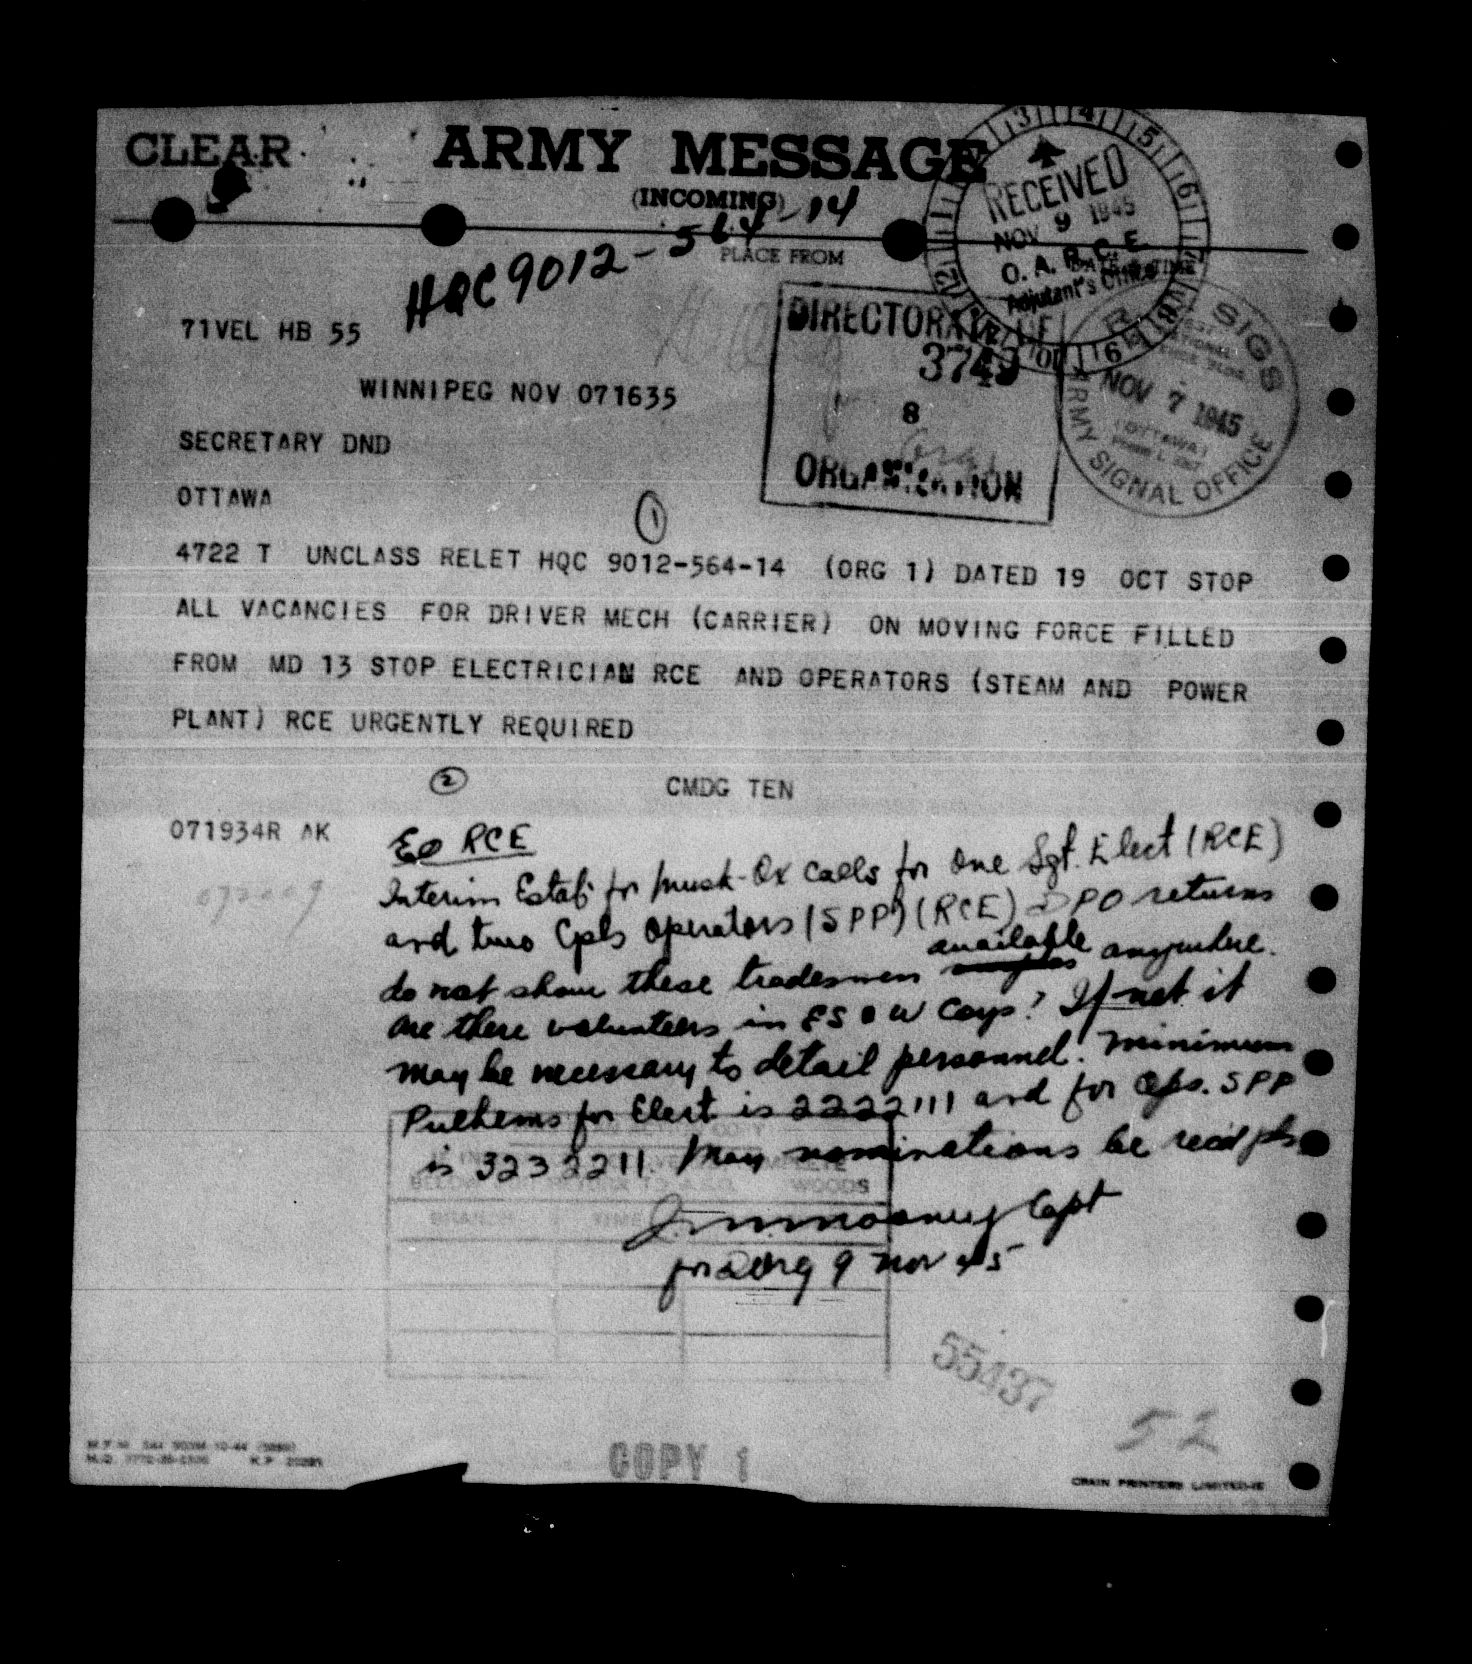 CLEAR
ARMY MESSAGE
(INCOMING)
HQC 9012-564-14
PLACE FROM
RECEIVED
NOV 9 1945
O. A. R. C. E.
Adjutant's Office
71VEL HB 55
DIRECTORATE OF
3749
8
ORGANIZATION
SIGS
NOV 7 1945
(OTTAWA)
ARMY SIGNAL OFFICE
WINNIPEG NOV 071635
SECRETARY DND
OTTAWA
1
4722 T UNCLASS RELET HQC 9012-564-14 (ORG 1) DATED 19 OCT STOP
ALL VACANCIES FOR DRIVER MECH (CARRIER) ON MOVING FORCE FILLED
FROM MD 13 STOP ELECTRICIAN RCE AND OPERATORS (STEAM AND POWER
PLANT) RCE URGENTLY REQUIRED
2
CMDG TEN
071934R AK
RCE
Interim Estab for Musk-Ox calls for One Sgt. Elect (RCE)
and two Cpls Operators (SPP) (RCE) DPO returns
do not show these tradesmen available anywhere.
Are there volunteers in ES & W Coys? If not it
may be necessary to detail personnel. Minimum
Pulhems for Elect is 2222111 and for Ops. SPP
is 3232211. May nominations be recd pls
Capt
for DOrg 9 Nov 45
COPY
WOODS
BRANCH TIME
55437
52
COPY 1
CRAIN PRINTERS LIMITED